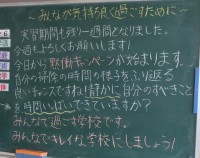 ～みんなが気持ち良く過ごすために～
実習期間も残り一週間となりました。
今週もよろしくお願いします!
今日から黙働キャンペーンが始まります。
自分の掃除の時間の様子をふり返る
良いチャンスですね!静かに自分のすべきこと
を時間いっぱいできていますか?
みんなで過ごす学校です。
みんなでキレイな学校にしましょう!